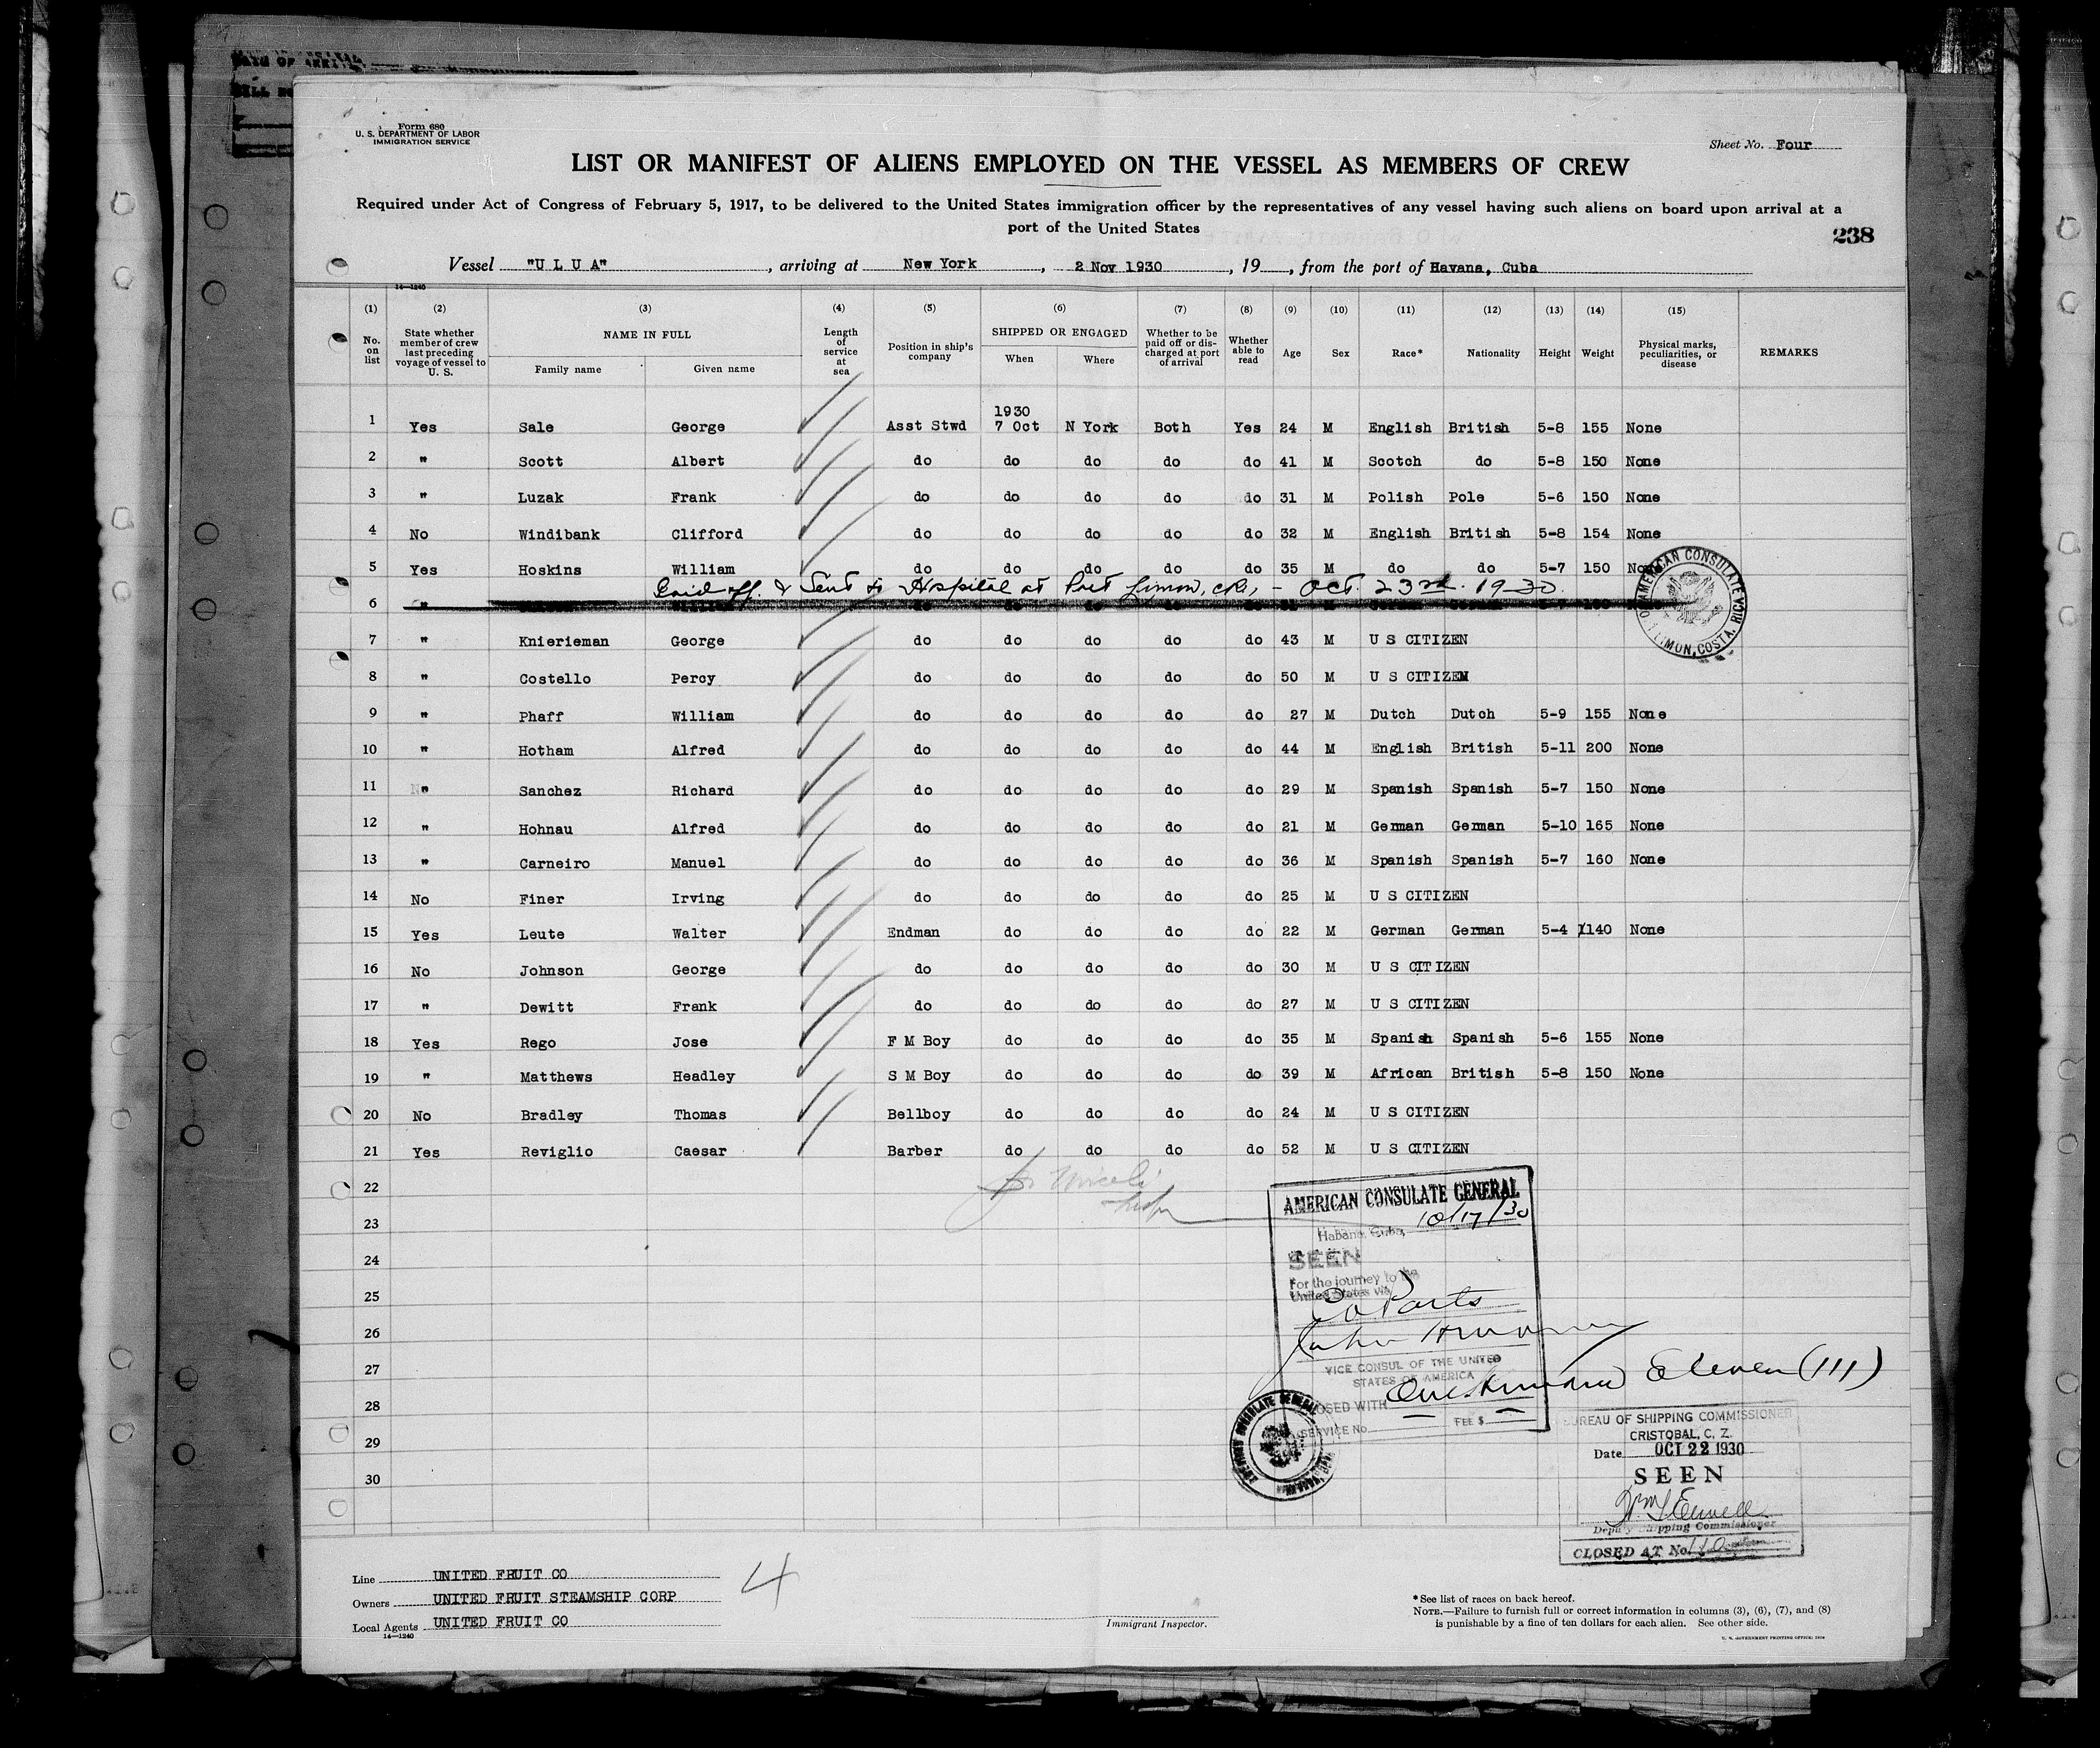 Form 680
U. S. DEPARTMENT OF LABOR
IMMIGRATION SERVICE
Sheet No. Four
LIST OR MANIFEST OF ALIENS EMPLOYED ON THE VESSEL AS MEMBERS OF CREW
Required under Act of Congress of February 5, 1917, to be delivered to the United States immigration officer by the representatives of any vessel having such aliens on board upon arrival at a
port of the United States
238
Vessel "U L U A", arriving at New York, 2 Nov 1930, 19, from the port of Havana, Cuba
14—1240
(1) (2) (3) (4) (5) (6) (7) (8) (9) (10) (11) (12) (13) (14) (15)
No. on list State whether member of crew last preceding voyage of vessel to U. S. NAME IN FULL Family name Given name Length of service at sea Position in ship's company SHIPPED OR ENGAGED When Where Whether to be paid off or discharged at port of arrival Whether able to read Age Sex Race* Nationality Height Weight Physical marks, peculiarities, or disease REMARKS
1930
1 Yes Sale George Asst Stwd 7 Oct N York Both Yes 24 M English British 5-8 155 None
2 " Scott Albert do do do do do 41 M Scotch do 5-8 150 None
3 " Luzak Frank do do do do do 31 M Polish Pole 5-6 150 None
4 No Windibank Clifford do do do do do 32 M English British 5-8 154 None
5 Yes Hoskins William do do do do do 35 M do do 5-7 150 None
Paid off & Sent to Hospital at Port Limon, C.R., - Oct. 23rd. 1930
6 "
AMERICAN CONSULATE LIMON, COSTA RICA
7 " Knierieman George do do do do do 43 M U S CITIZEN
8 " Costello Percy do do do do do 50 M U S CITIZEN
9 " Phaff William do do do do do 27 M Dutch Dutch 5-9 155 None
10 " Hotham Alfred do do do do do 44 M English British 5-11 200 None
11 " Sanchez Richard do do do do do 29 M Spanish Spanish 5-7 150 None
12 " Hohnau Alfred do do do do do 21 M German German 5-10 165 None
13 " Carneiro Manuel do do do do do 36 M Spanish Spanish 5-7 160 None
14 No Finer Irving do do do do do 25 M U S CITIZEN
15 Yes Leute Walter Endman do do do do 22 M German German 5-4 140 None
16 No Johnson George do do do do do 30 M U S CITIZEN
17 " Dewitt Frank do do do do do 27 M U S CITIZEN
18 Yes Rego Jose F M Boy do do do do 35 M Spanish Spanish 5-6 155 None
19 " Matthews Headley S M Boy do do do do 39 M African British 5-8 150 None
20 No Bradley Thomas Bellboy do do do do 24 M U S CITIZEN
21 Yes Reviglio Caesar Barber do do do do 52 M U S CITIZEN
22
23
24
25
26
27
28
29
30
AMERICAN CONSULATE GENERAL
Habana, Cuba, 10/17/30
SEEN
For the journey to the
United States via
VICE CONSUL OF THE UNITED
STATES OF AMERICA
One hundred Eleven (111)
SERVICE No. FEE $
BUREAU OF SHIPPING COMMISSIONER
CRISTOBAL, C. Z.
Date OCT 22 1930
SEEN
Deputy Shipping Commissioner
CLOSED AT No.
Line UNITED FRUIT CO
Owners UNITED FRUIT STEAMSHIP CORP
Local Agents UNITED FRUIT CO
14—1240
4
Immigrant Inspector.
* See list of races on back hereof.
NOTE.—Failure to furnish full or correct information in columns (3), (6), (7), and (8)
is punishable by a fine of ten dollars for each alien. See other side.